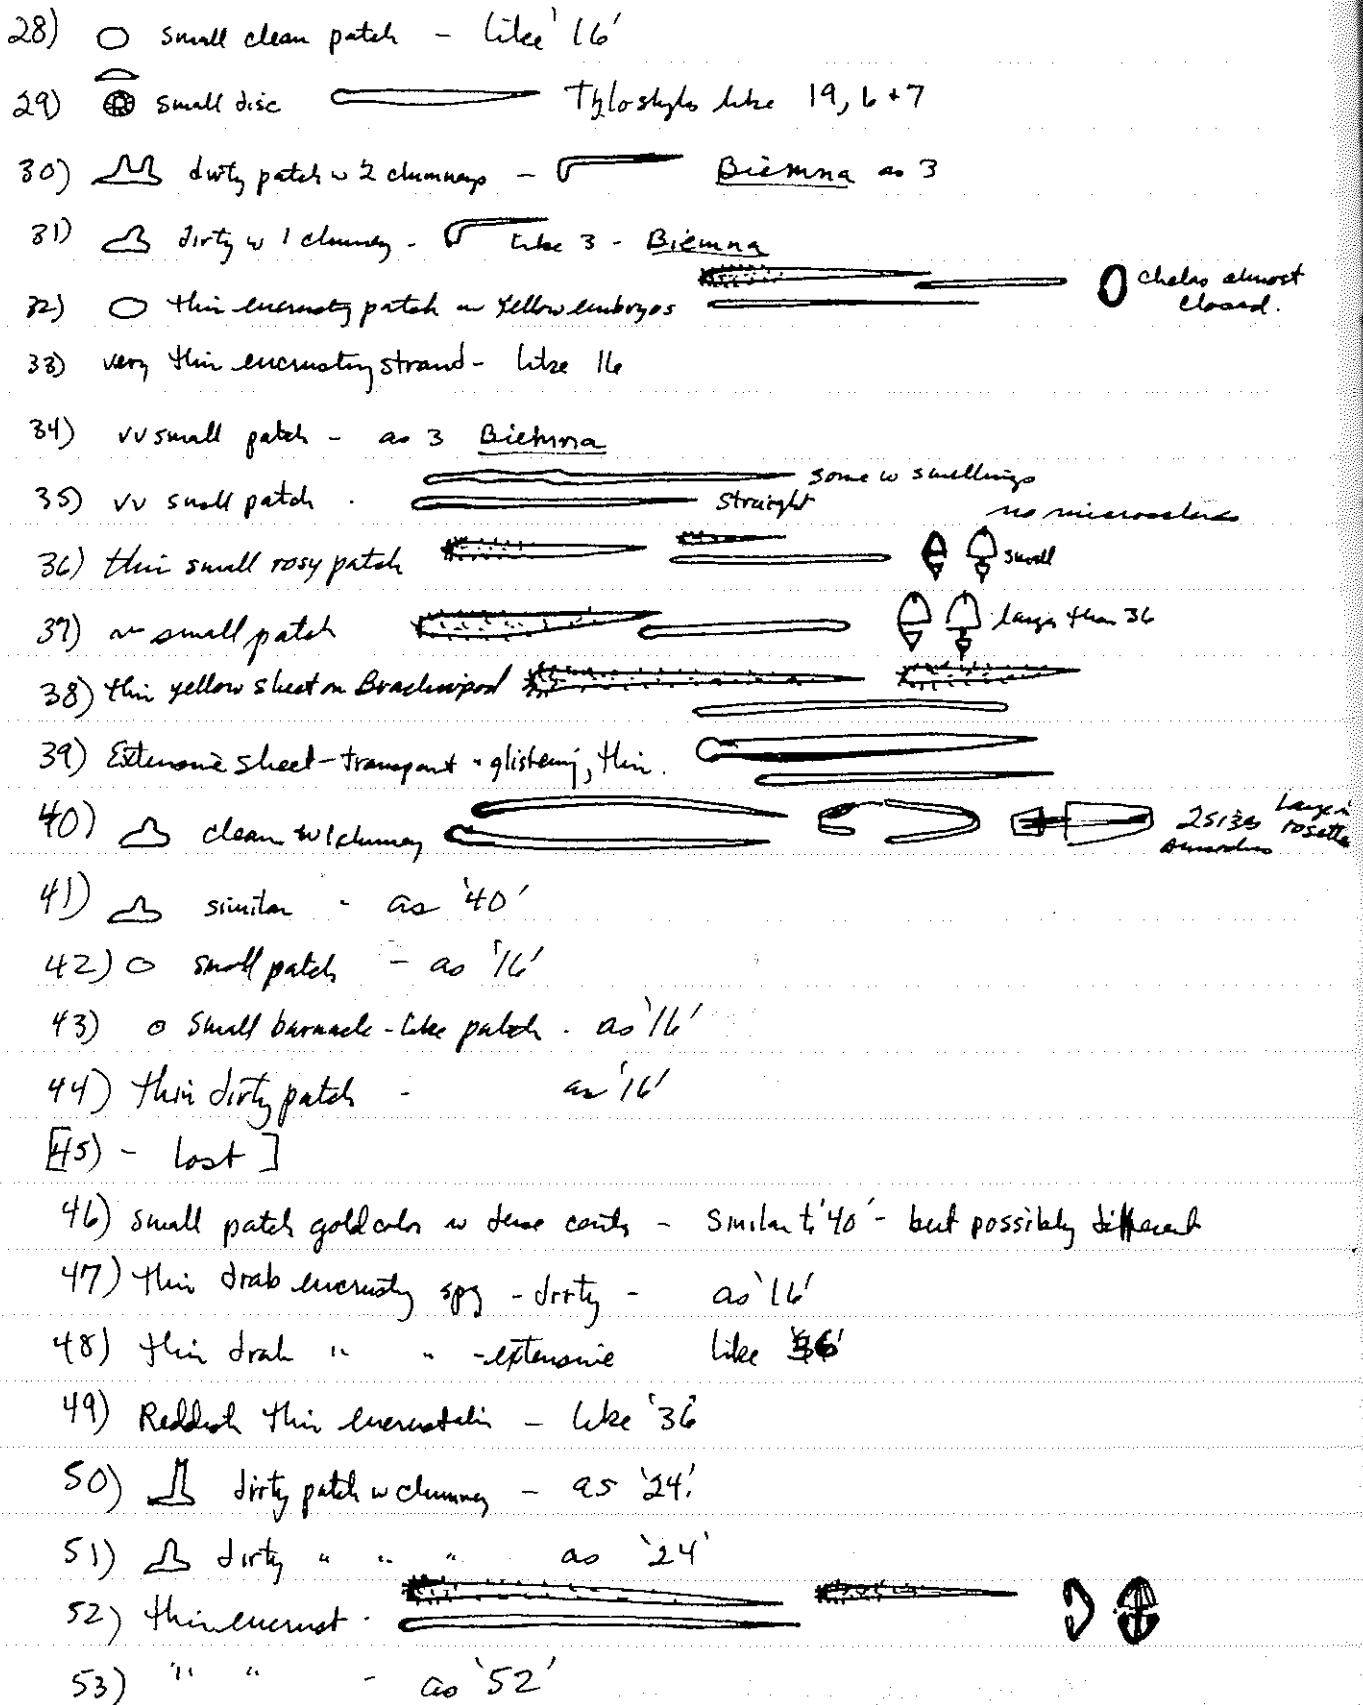 28) small clean patch - like '16'
29) small disc Tylostyle like 19, 6+7
30) dirty patch w 2 chimneys - Biemna as 3
31) dirty w 1 chimney - like 3 - Biemna
32) thin encrusting patch w yellow embryos chelas almost closed.
33) very thin encrusting strand - like 16
34) vv small patch - as 3 Biemna
some w swellings
35) vv small patch. straight
no microscleres
36) thin small rosy patch small
37) small patch larger than 36
38) thin yellow sheet on Brachiopod
39) Extensive sheet - transparent - glistening, thin.
40) clean w 1 chimney 2 sizes Larger in rosette
41) similar - as '40'
42) small patch - as '16'
43) small barnacle-like patch. as '16'
44) thin dirty patch - as '16'
[45) - lost]
46) small patch gold color w dense - similar to '40' - but possibly different
47) thin drab encrusting spg - dirty - as '16'
48) thin drab " " - extensive like '36'
49) Reddish thin encrustation - like '36
50) dirty patch w chimney - as '24'
51) dirty " " " as '24'
52) thin encrust.
53) " " - as '52'